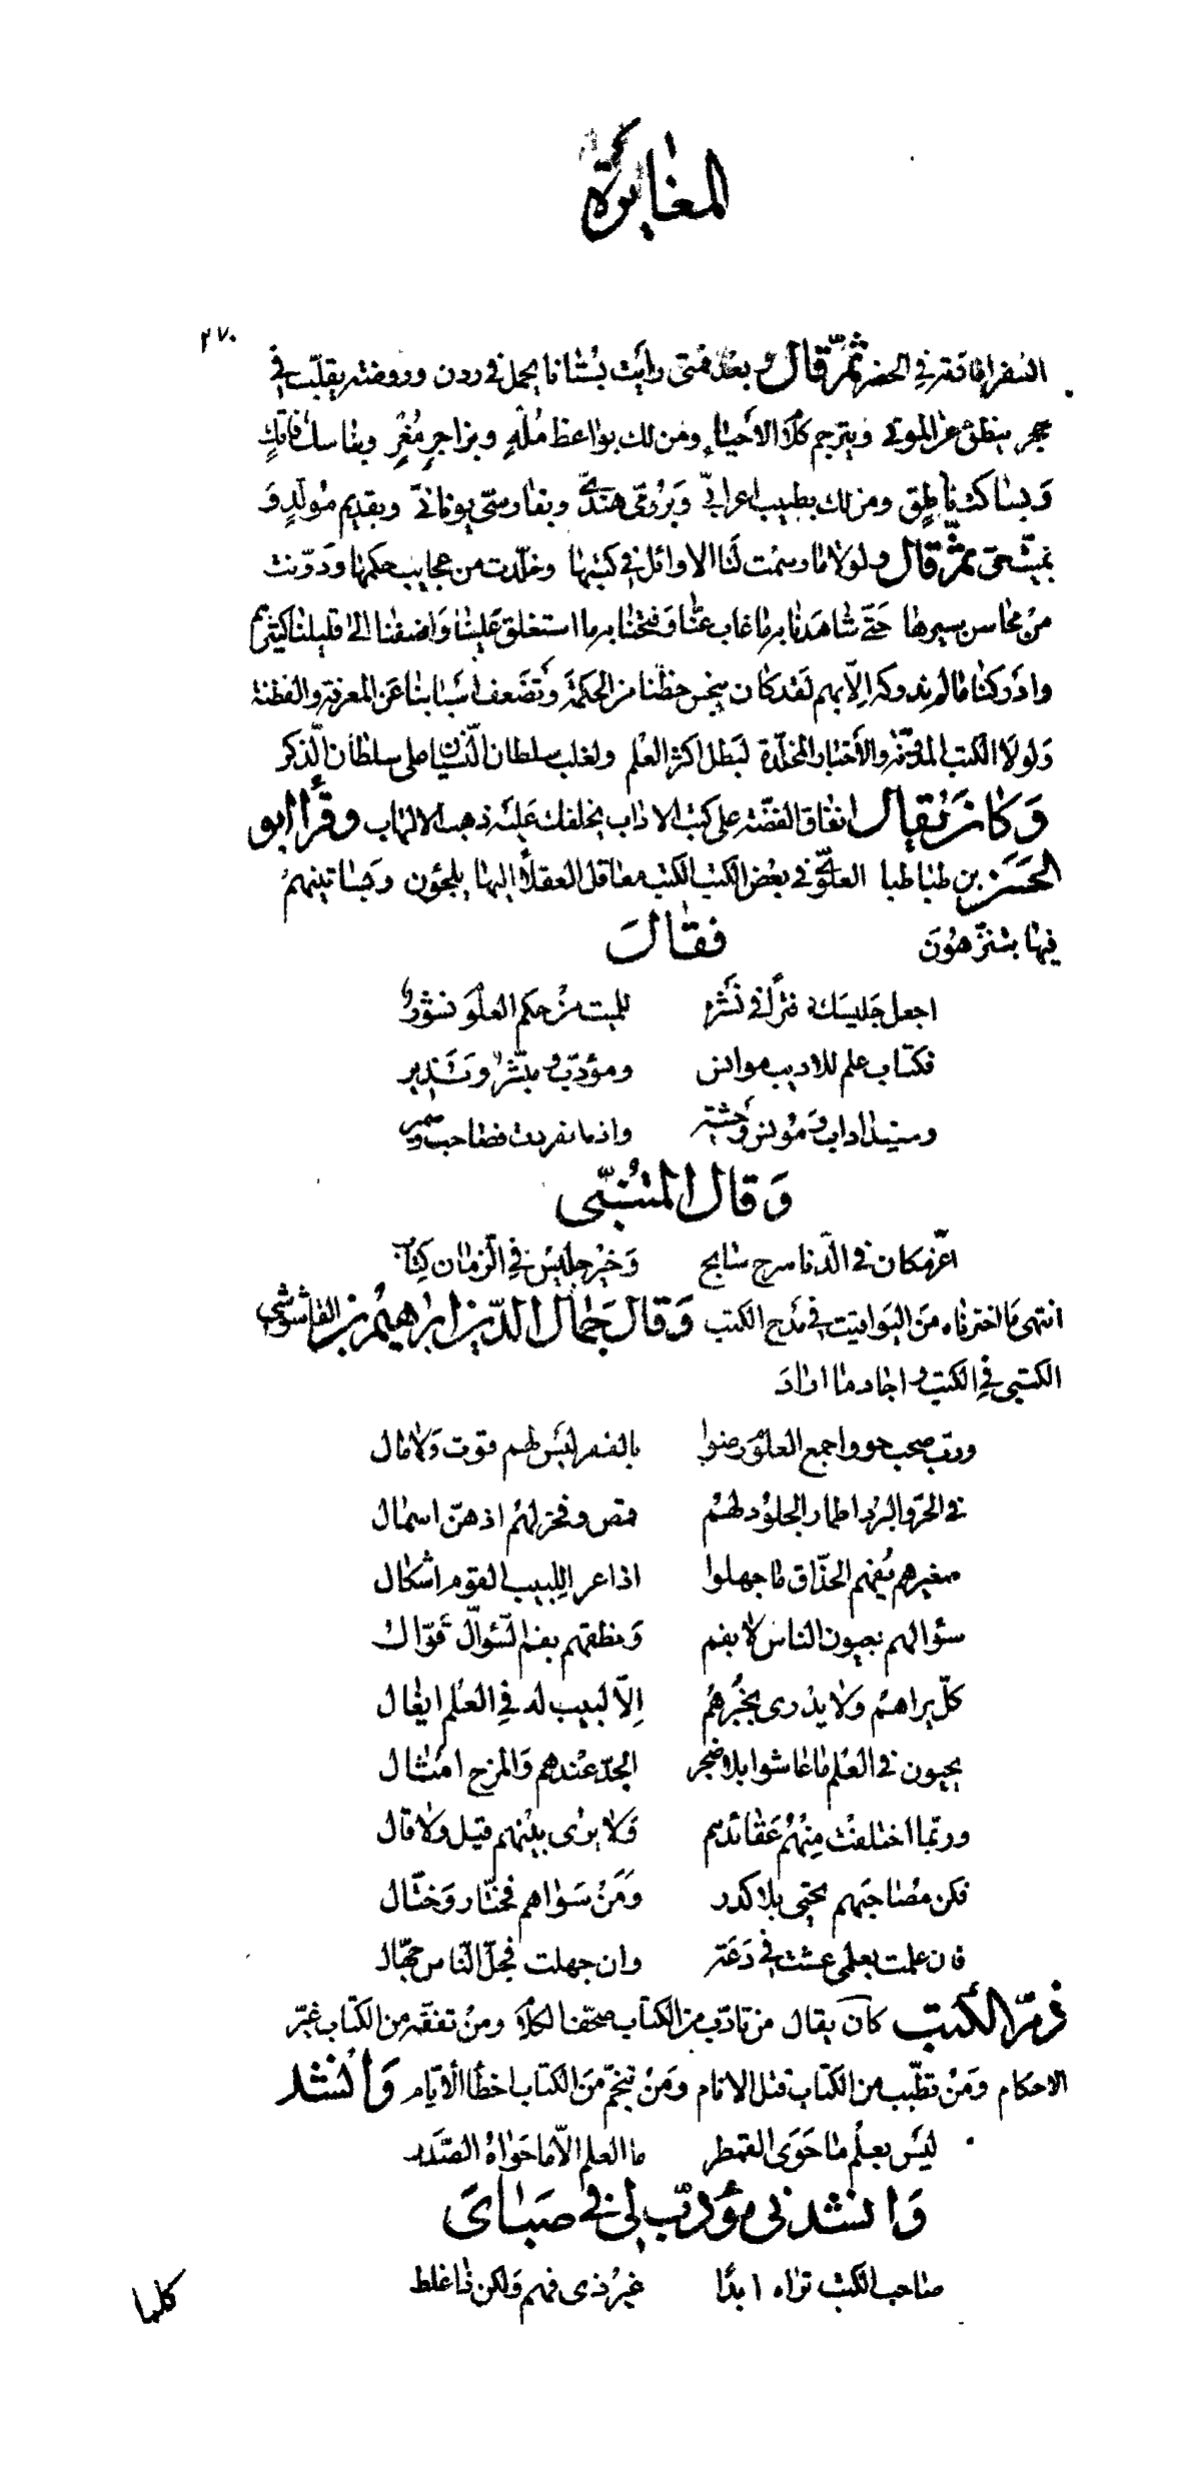 المغايرة
٢٧٠
السفر افادته في الحضر ثمّ قال وبعد فمتى رأيت بستانا يحمل في ردن وروضة يقلّب في
حجر ينطق عن الموتى ويترجم كلام الأحياء ومن لك بواعظ مُلْهٍ وبزاجرٍ مُغرٍ وبناسك فاتكٍ
وبساكت ناطق ومن لك بطبيب اعرابيّ وبروميّ هنديّ وبفارسيّ يونانيّ وبقديم مولّدٍ و
بميّت ثمّ قال ولولا ما رسمت لنا الاوائل في كتبها وخلّدت من عجايب حكمها ودوّنت
من محاسن سيرها حتّى شاهدنا بها ما غاب عنّا وفتحنا بها ما استغلق علينا واضفنا الى قليلنا كثيرهم
وادركنا ما لم ندركه إلّا بهم لقد كان يبخس حظّنا من الحكمة وتضعف اسبابنا عن المعرفة والفطنة
ولولا الكتب المدوّنة والأخبار المخلّدة لبطل اكثر العلم ولغلب سلطان النّسيان على سلطان الذّكر
وكان يُقال انفاق الفضّة على كتب الاداب يخلفك عليه ذهب الالباب وقرأ ابو
الحسن بن طباطبا العلويّ في بعض الكتب الكتب معاقل العقلاء إليها يلجؤن وبساتينهم
فيها يتنزّهون فقال
اجعل جليسك دفترا في نشره للميت من حكم العلوم نشور
فكتاب علم للاديب موانس ومؤدّب ومبشّر ونذير
ومفيد اداب ومؤنس وحشة واذا انفردت فصاحب وسمير
وقال المتنبّي
اعزّ مكان في الدّنا سرج سابح وخير جليس في الزمان كتاب
انتهى ما اخترناه من اليواقيت في مدح الكتب وقال جمال الدّين ابراهيم بن الفاشوشي
الكتبي في الكتب واجاد ما اراد
وربّ صحب حووا جمع العلوم رضوا بالفقر ليس لهم قوت ولا مال
في الحرّ والبرد اطمار الجلود لهم قمص وفخر لهم اذ هنّ اسمال
صغيرهم يُفهم الحذّاق ما جهلوا اذا عرا للبيب القوم اشكال
سؤالهم بعيون الناس لا بفم ونطقهم بفم السّؤال قوّال
كلّ يراهم ولا يدرى بخبرهم إلّا لبيب له في العلم ايغال
يحيون في العلم ما عاشوا بلا ضجر الجدّ عندهم والمزح امثال
وربّما اختلفت منهم عقائدهم ولا يرى بينهم قيل ولا قال
فكن مصاحبهم تحيى بلا كدر ومن سواهم فختّار وختّال
فان علمت بعلمي عشت في دعة وان جهلت فجلّ النّاس جهّال
ذمّ الكتب كان يقال من تادّب من الكتاب صحّف الكلام ومن تفقّه من الكتاب غيّر
الاحكام ومن تطبّب من الكتاب قتل الانام ومن تنجّم من الكتاب اخطأ الأيّام وأنشد
ليس بعلم ما حوى القمطر ما العلم إلّا ما حواه الصّدر
وانشدني مؤدّب لي في صباي
صاحب الكتب تراه ابدًا غير ذي فهم ولكن ذا غلط
كلما